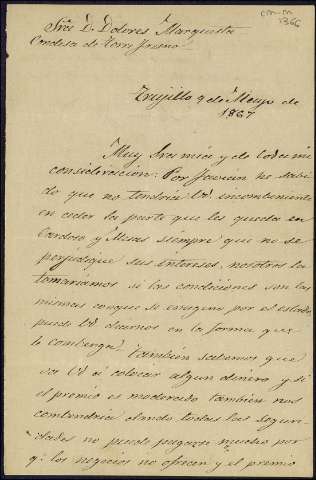 Sra Da Dolores Margueta
Condesa de Torre Fresno
CM-M
1366
Trujillo 9 de Mayo de
1867
Muy Sra mia y de toda mi
consideración: Por Joaquin he sabi
do que no tendria Vd incombeniente
en ceder la parte que les queda en
Cardoso y Mesas siempre que no se
perjudique sus intereses, nosotros la
tomariamos si las condiciones son las
mismas conque se enageno por el estado,
puede Vd decirnos en la forma que
le combenga. Tambien sabemos que
va Vd á colocar algun dinero y si
el premio es moderado tambien nos
combendria dando todas las seguri-
dades no puede pagarse mucho por
q. los negocios no ofrecen y el premio